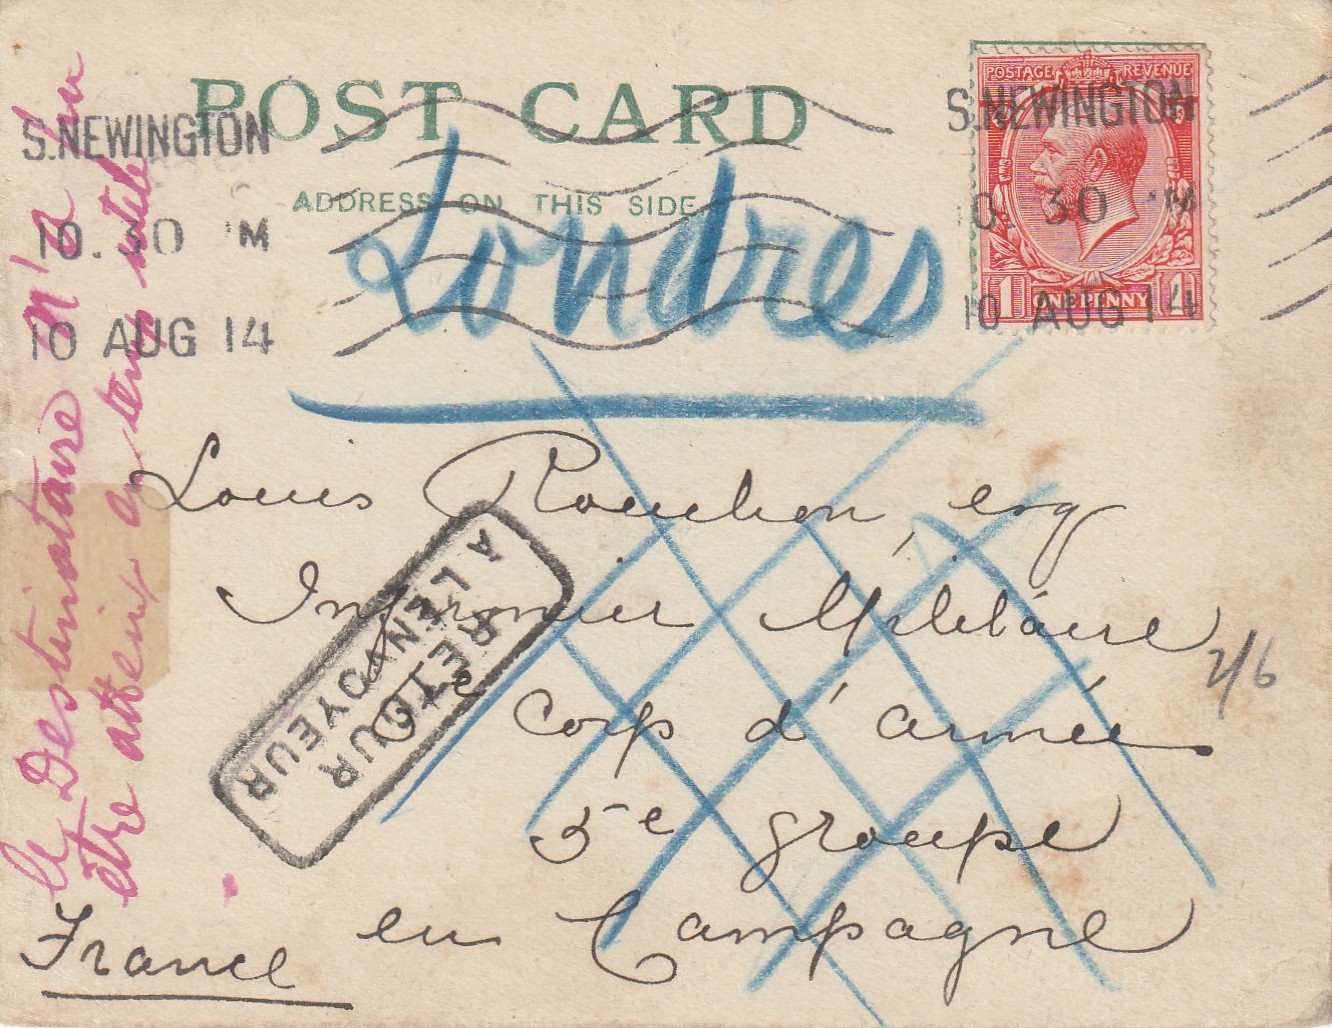 POST CARD
ADDRESS ON THIS SIDE
S.NEWINGTON
10. 30 M
10 AUG 14
S.NEWINGTON
10. 30 M
10 AUG 14
POSTAGE REVENUE
1 ONE PENNY 1
Londres
Louis esq
Infirmier Militaire
Corp d'armée
5e groupe
en Campagne
France
RETOUR
A L'ENVOYEUR
le Destinataire n'a pu
être atteint en temps utile
2/6